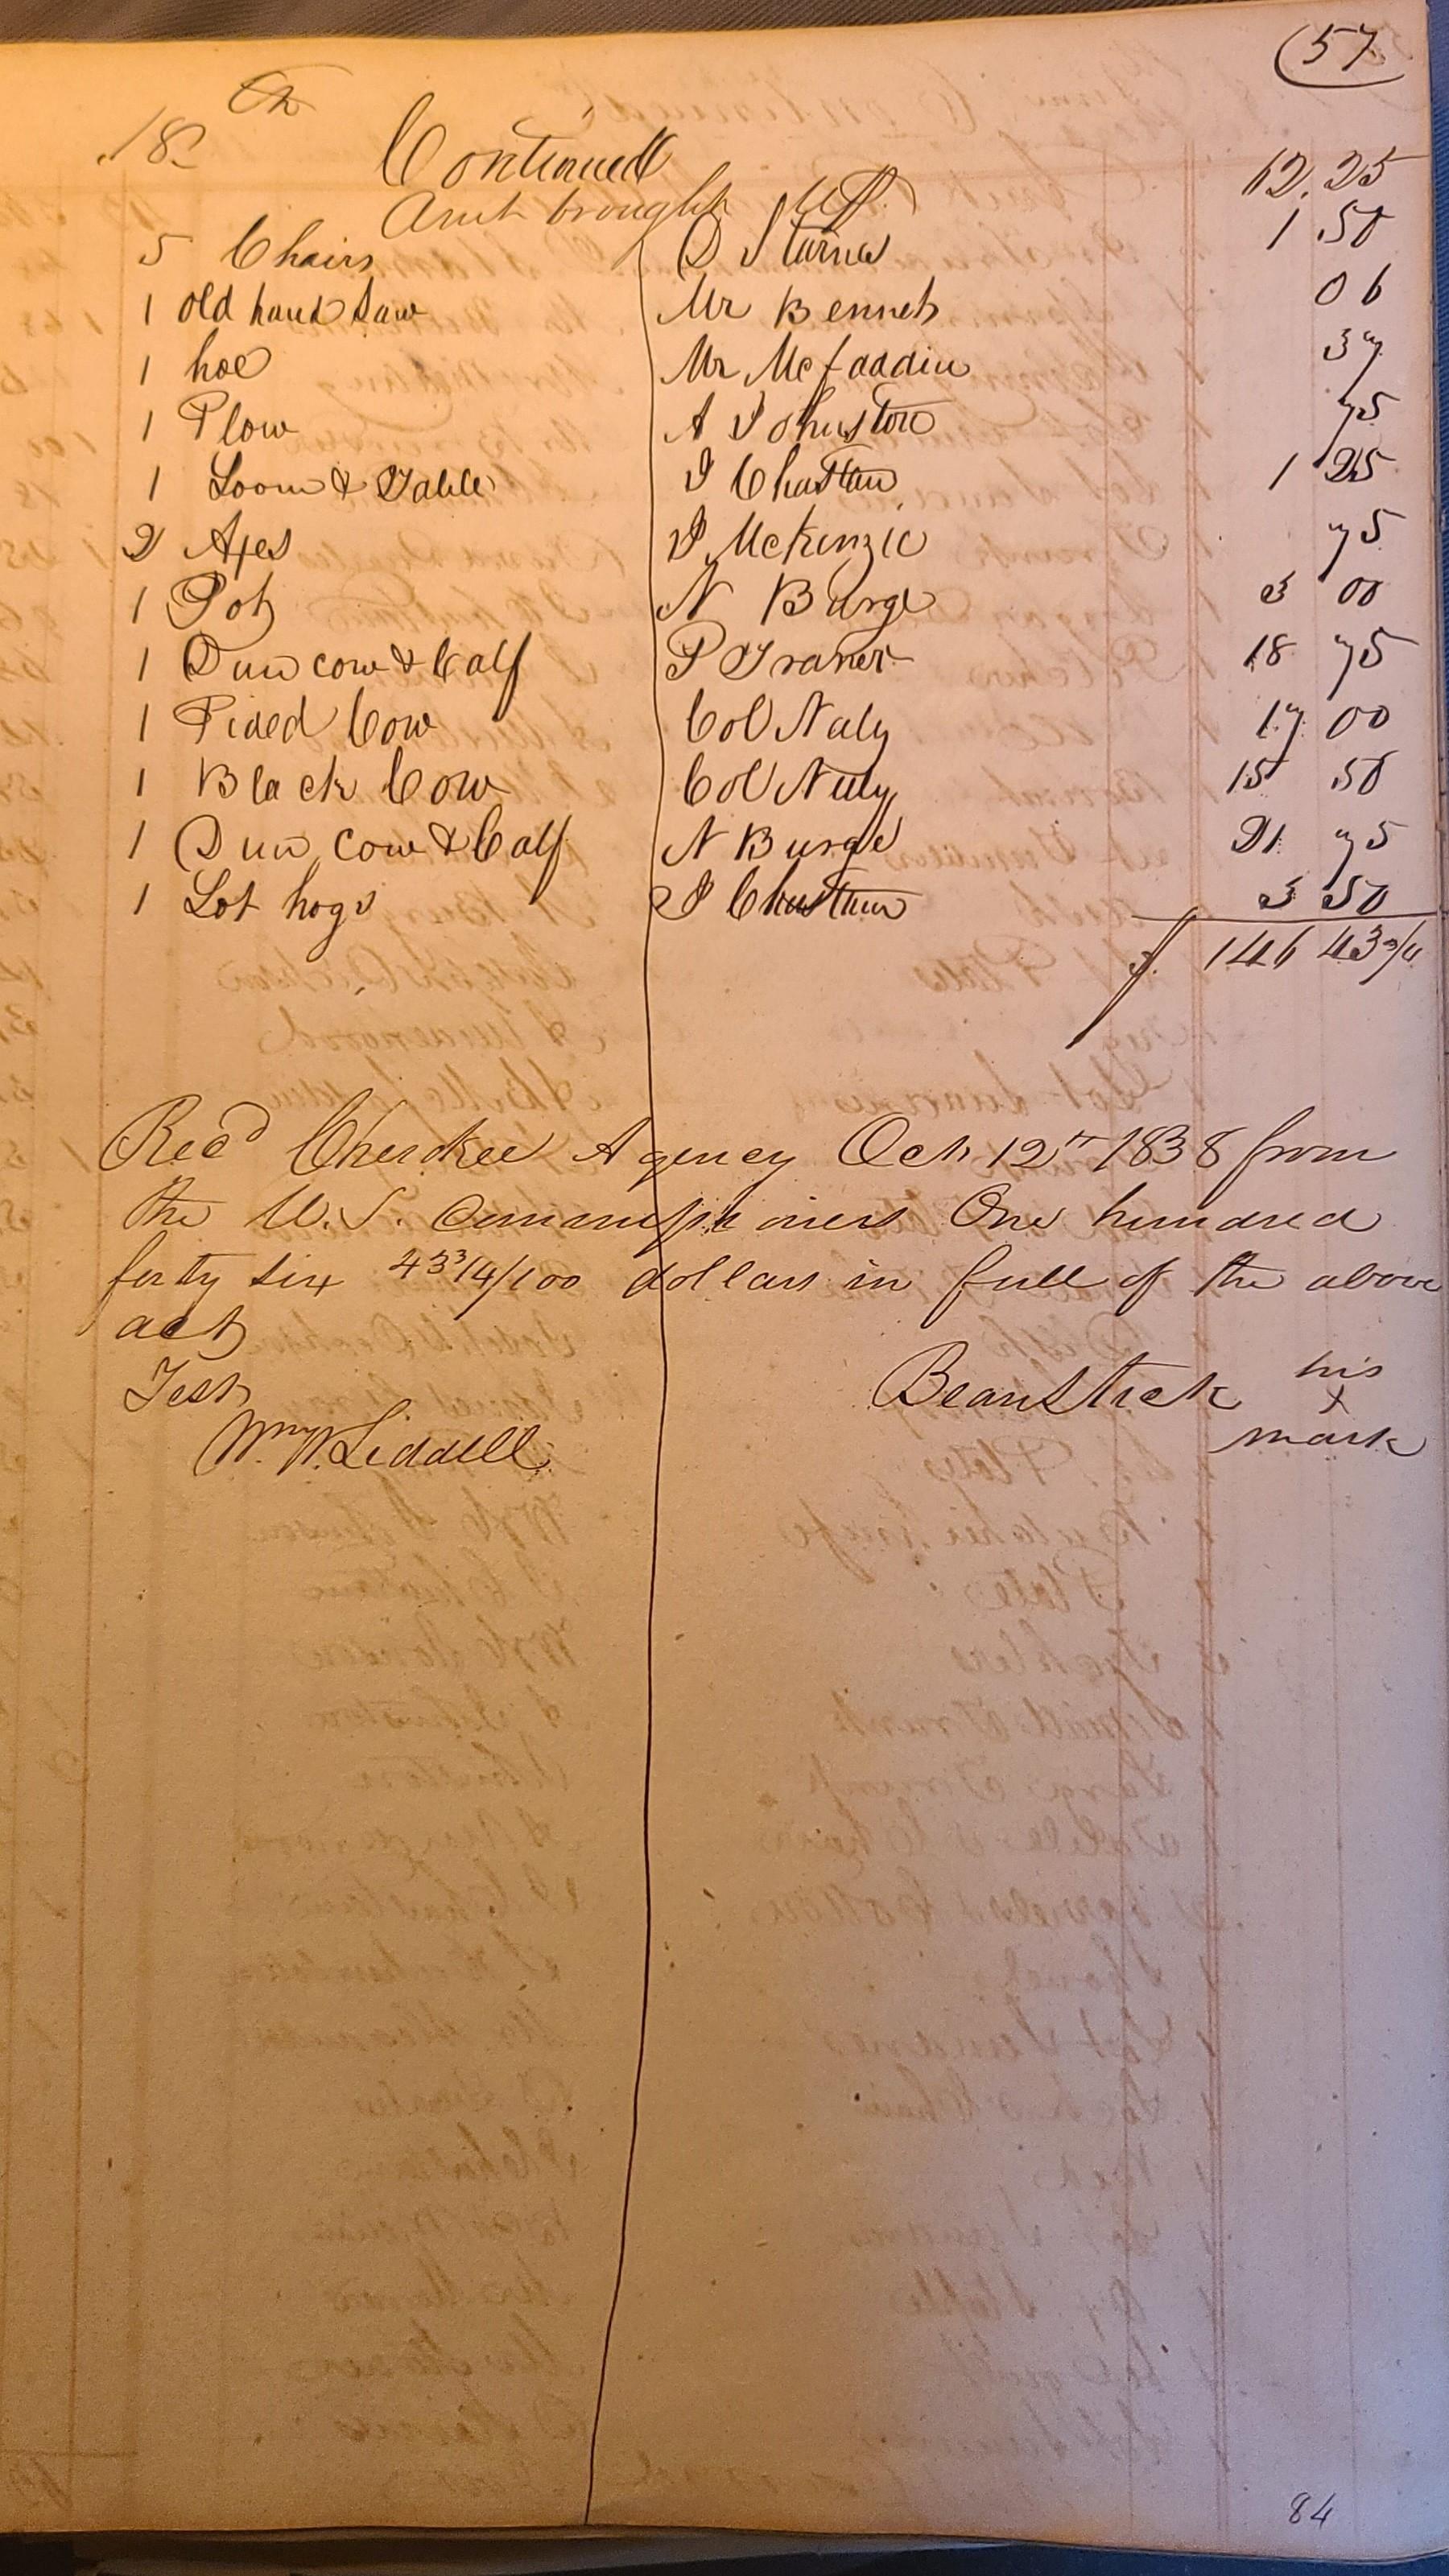 (57
18
Continued
Amt brought up
62.25
5 Chairs D Starns 1 50
1 old hand Saw Mr Bennet 06
1 hoe Mr Mcfaddin 37
1 Plow A Johnston 75
1 Loom & Table J Chastain 1 25
2 Axes J McKenzie 75
1 Pot N Burge 3 00
1 Dun cow & Calf P Traner 18 75
1 Pided Cow Col Naly 17 00
1 Black Cow Col Nuly 15 50
1 Dun Cow & Calf N Burge 21 75
1 Lot hogs J Chastain 3 50
$ 146 43 3/4
Recd Cherokee Agency Oct 12th 1838 from
the U.S. Commissioners One hundred
forty six 43 3/4/100 dollars in full of the above
act
Test Beanstick his
x
Wm W. Liddell mark
84